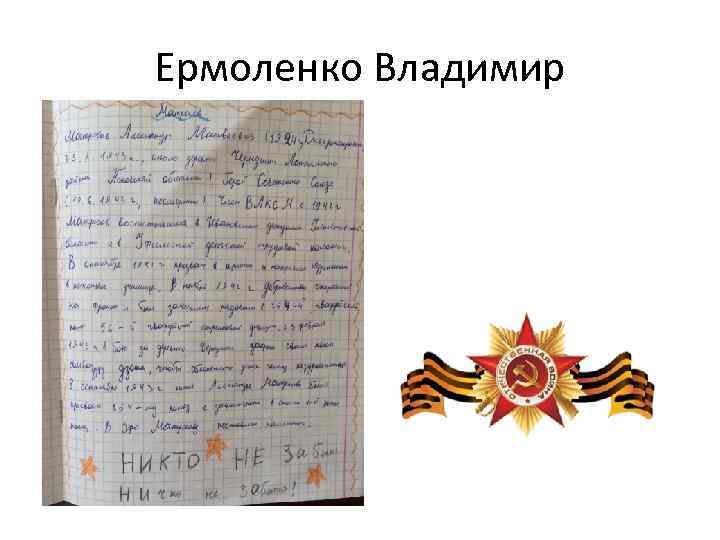 Ермоленко Владимир
Матросов
Матросов Александр Матвеевич (1924, Днепропетровск
23.2.1943 г., около дер. Чернушки Локнянского
района Псковской области) Герой Советского Союза
(19.6.1943 г, посмертно) Член ВЛКСМ с 1942 г
Матросов воспитывался в Ивановском детдоме
области и в Уфимской детской трудовой колонии.
В сентябре призван в армию и
в пехотное училище. В ноябре 1942 г добровольно
на фронт и был зачислен рядовым в 254-й гвардейский
полк 56-й гвардейской стрелковой 23 февраля
1943 г в бою за деревню Чернушки закрыл своим телом
амбразуру дзота, чтобы
8 сентября 1943 г имя Александра Матросова было
присвоено 254-му полку, а
В Матросову поставлен памятник.
НИКТО НЕ Забыт
Ничто не забыто!
ОТЕЧЕСТВЕННАЯ ВОЙНА